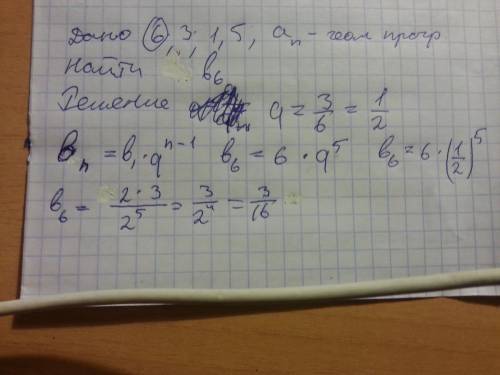 Дано 6, 3; 1,5, aₙ - геом прогр
Найти b₆
Решение q = 3/6 = 1/2
bₙ = b₁ · qⁿ⁻¹ b₆ = 6 · q⁵ b₆ = 6 · (1/2)⁵
b₆ = 2·3/2⁵ = 3/2⁴ = 3/16